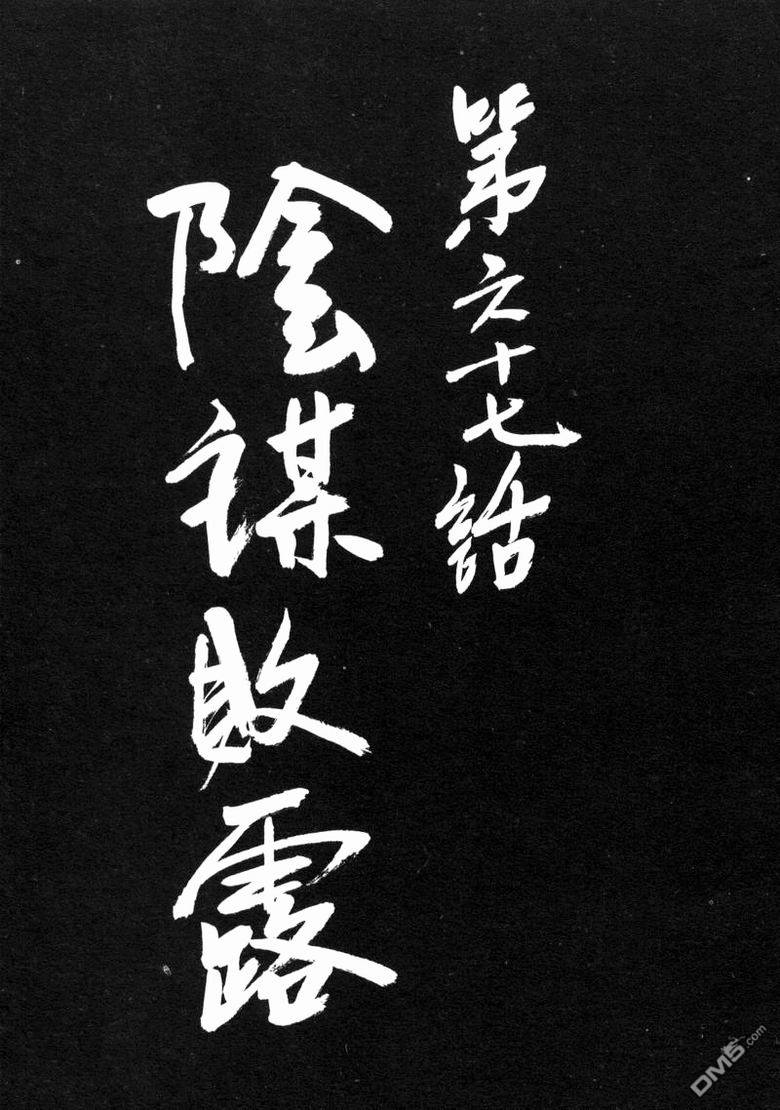 第六十七話
陰謀敗露
DM5.com